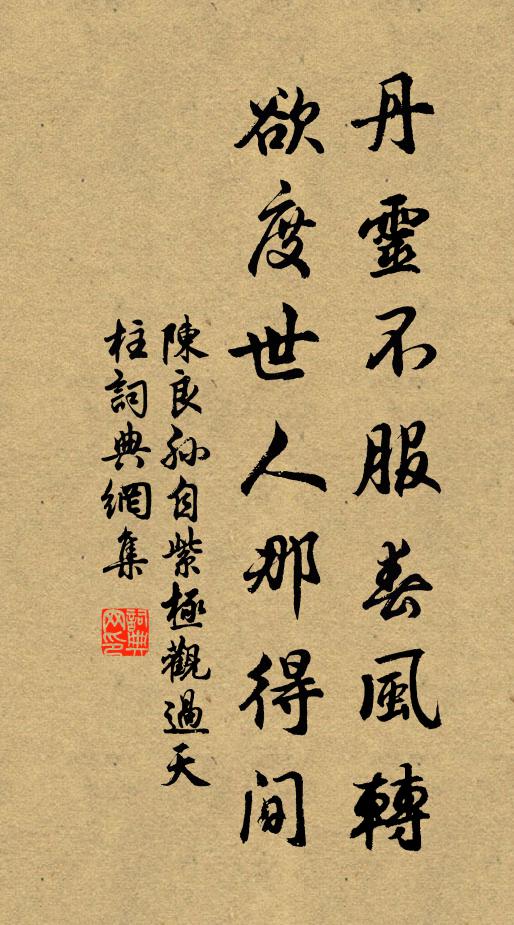 丹靈不服春風轉
欲度世人那得间
陳良孙自紫極觀過天
柱詞典網集
詞典
网印